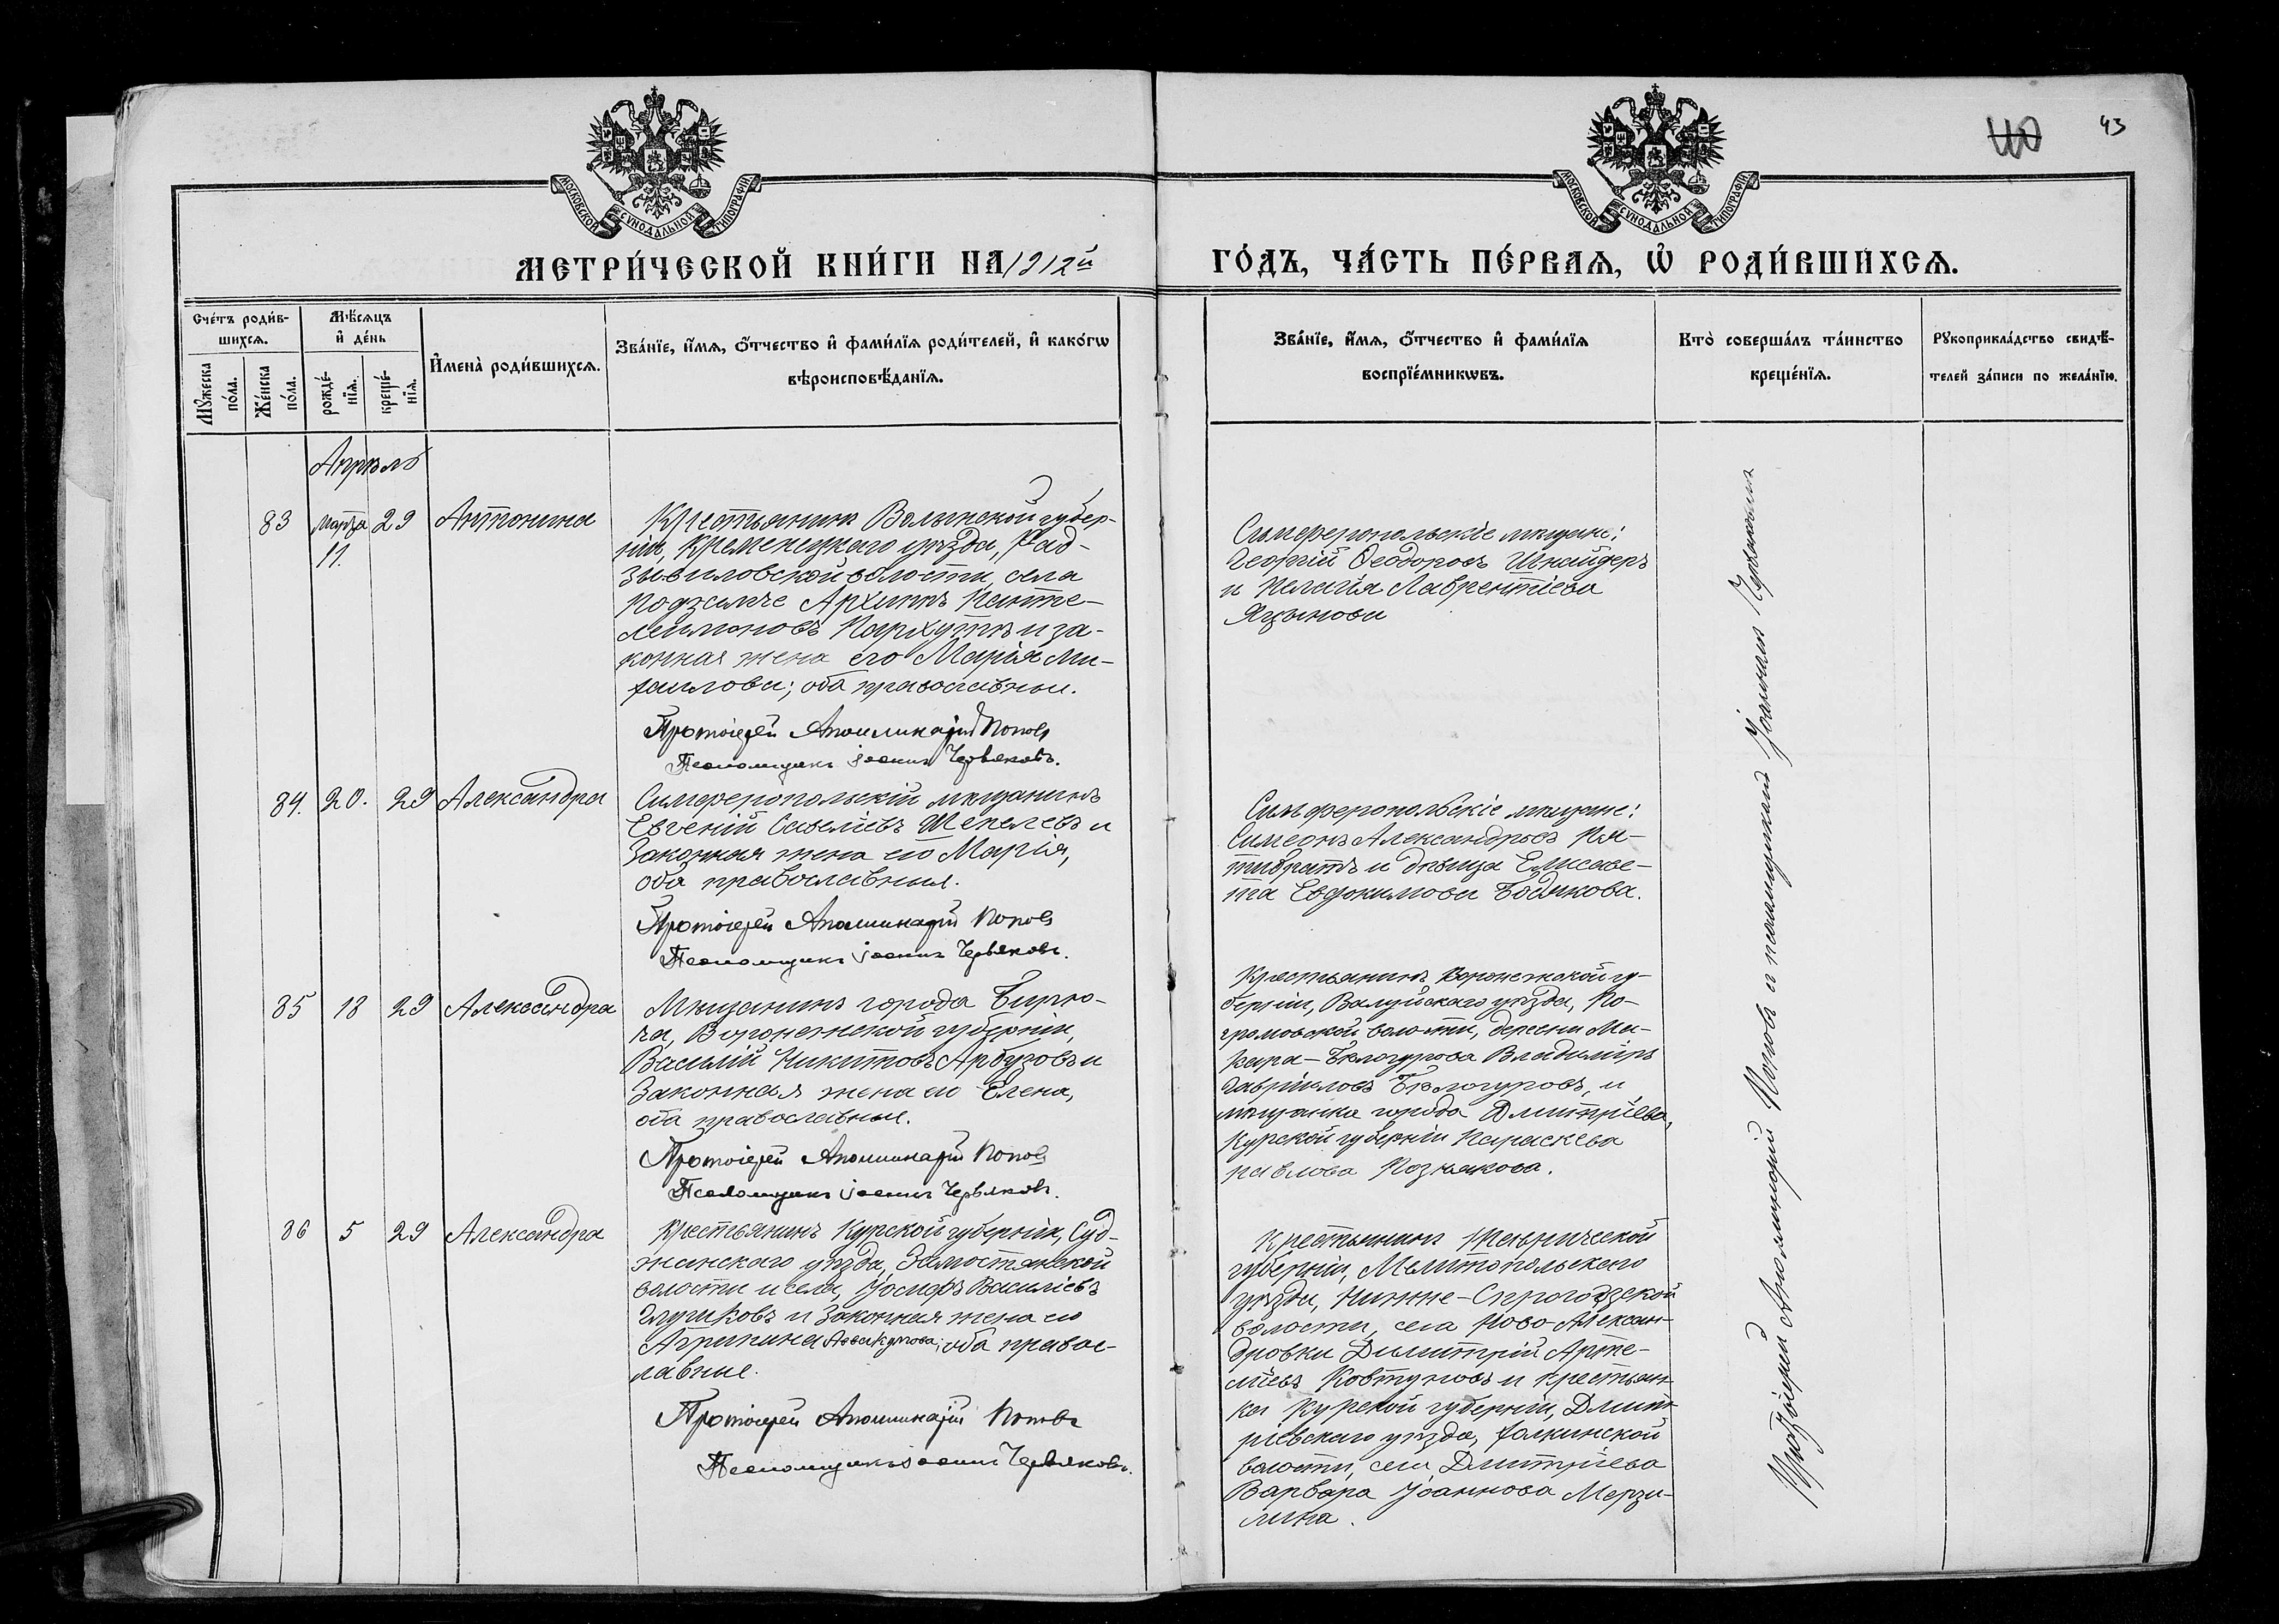 40
43
МОСКОВСКОЙ СѴНОДАЛЬНОЙ ТИПОГРАФІИ
МОСКОВСКОЙ СѴНОДАЛЬНОЙ ТИПОГРАФІИ
МЕТРИ́ЧЕСКОЙ КНИ́ГИ НА 1912й
ГО́ДЪ, ЧА́СТЬ ПЕ́РВАѦ, Ѡ҆ РОДИ́ВШИХСѦ.
Сче́тъ роди́в-
шихсѧ.
Мꙋ́жеска
по́ла.
Же́нска
по́ла.
Мѣ́сѧцъ
и҆ де́нь
рожде́-
нїѧ.
креще́-
нїѧ.
И҆мена̀ роди́вшихсѧ.
Зва́нїе, и҆́мѧ, ѻ҆́тчество и҆ фами́лїѧ роди́телей, и҆ како́гѡ
вѣроисповѣ́данїѧ.
Зва́нїе, и҆́мѧ, ѻ҆́тчество и҆ фами́лїѧ
воспрїе́мникѡвъ.
Кто̀ соверша́лъ та́инство
креще́нїѧ.
Рꙋкоприкла́дство свидѣ́-
телей за́писи по жела́нїю.
Апрѣль
83
Марта
11.
29
Антонина
Крестьянинъ Волынской губер-
ніи, Кременецкаго уѣзда, Рад-
зивиловской волости, села
Подзамче Архипъ Панте-
леимоновъ Пархута и за-
конная жена его Марія Ми-
хаилова; оба православные.
Протоіерей Аполлинарій Поповъ
Псаломщикъ Іоаннъ Червяковъ.
Симферопольскіе мѣщане:
Георгій Ѳеодоровъ Шнайдеръ
и Пелагія Лаврентіева
Языкова
84.
20.
29
Александра
Симферопольскій мѣщанинъ
Евгеній Савеліевъ Шепелевъ и
законная жена его Марія,
оба православные.
Протоіерей Аполлинарій Поповъ
Псаломщикъ Іоаннъ Червяковъ.
Симферопольскіе мѣщане:
Симеонъ Александровъ Пя-
тибратъ и дѣвица Елисаве-
та Евдокимова Бодякова.
85
18
29
Александра
Мѣщанинъ города Бирю-
ча, Воронежской губерніи,
Василій Никитовъ Арбузовъ и
законная жена его Елена,
оба православные.
Протоіерей Аполлинарій Поповъ
Псаломщикъ Іоаннъ Червяковъ.
Крестьянинъ Воронежской гу-
берніи, Валуйскаго уѣзда, По-
громовской волости, деревни Ма-
кара-Бѣлогурова Владиміръ
Гавріиловъ Бѣлогуровъ, и
мѣщанка города Дмитріева,
Курской губерніи Параскева
Павлова Познякова.
86
5
29
Александра
Крестьянинъ Курской губерніи, Суд-
жанскаго уѣзда, Замостянской
волости и села, Іосифъ Василіевъ
Глушковъ и законная жена его
Агрипина Аввакумова; оба правос-
лавные.
Протоіерей Аполлинарій Поповъ
Псаломщикъ Іоаннъ Червяковъ.
Крестьянинъ Таврической
губерніи, Мелитопольскаго
уѣзда, Нижне-Сирогозской
волости, села Ново-Алексан-
дровки Димитрій Арте-
міевъ Ковтуновъ и крестьян-
ка Курской губерніи, Дмит-
ріевскаго уѣзда,
волости, села Дмитріева
Варвара Іоаннова Мерзи-
лина.
Протоіерей Аполлинарій Поповъ и псаломщикъ Іоаннъ Червяковъ